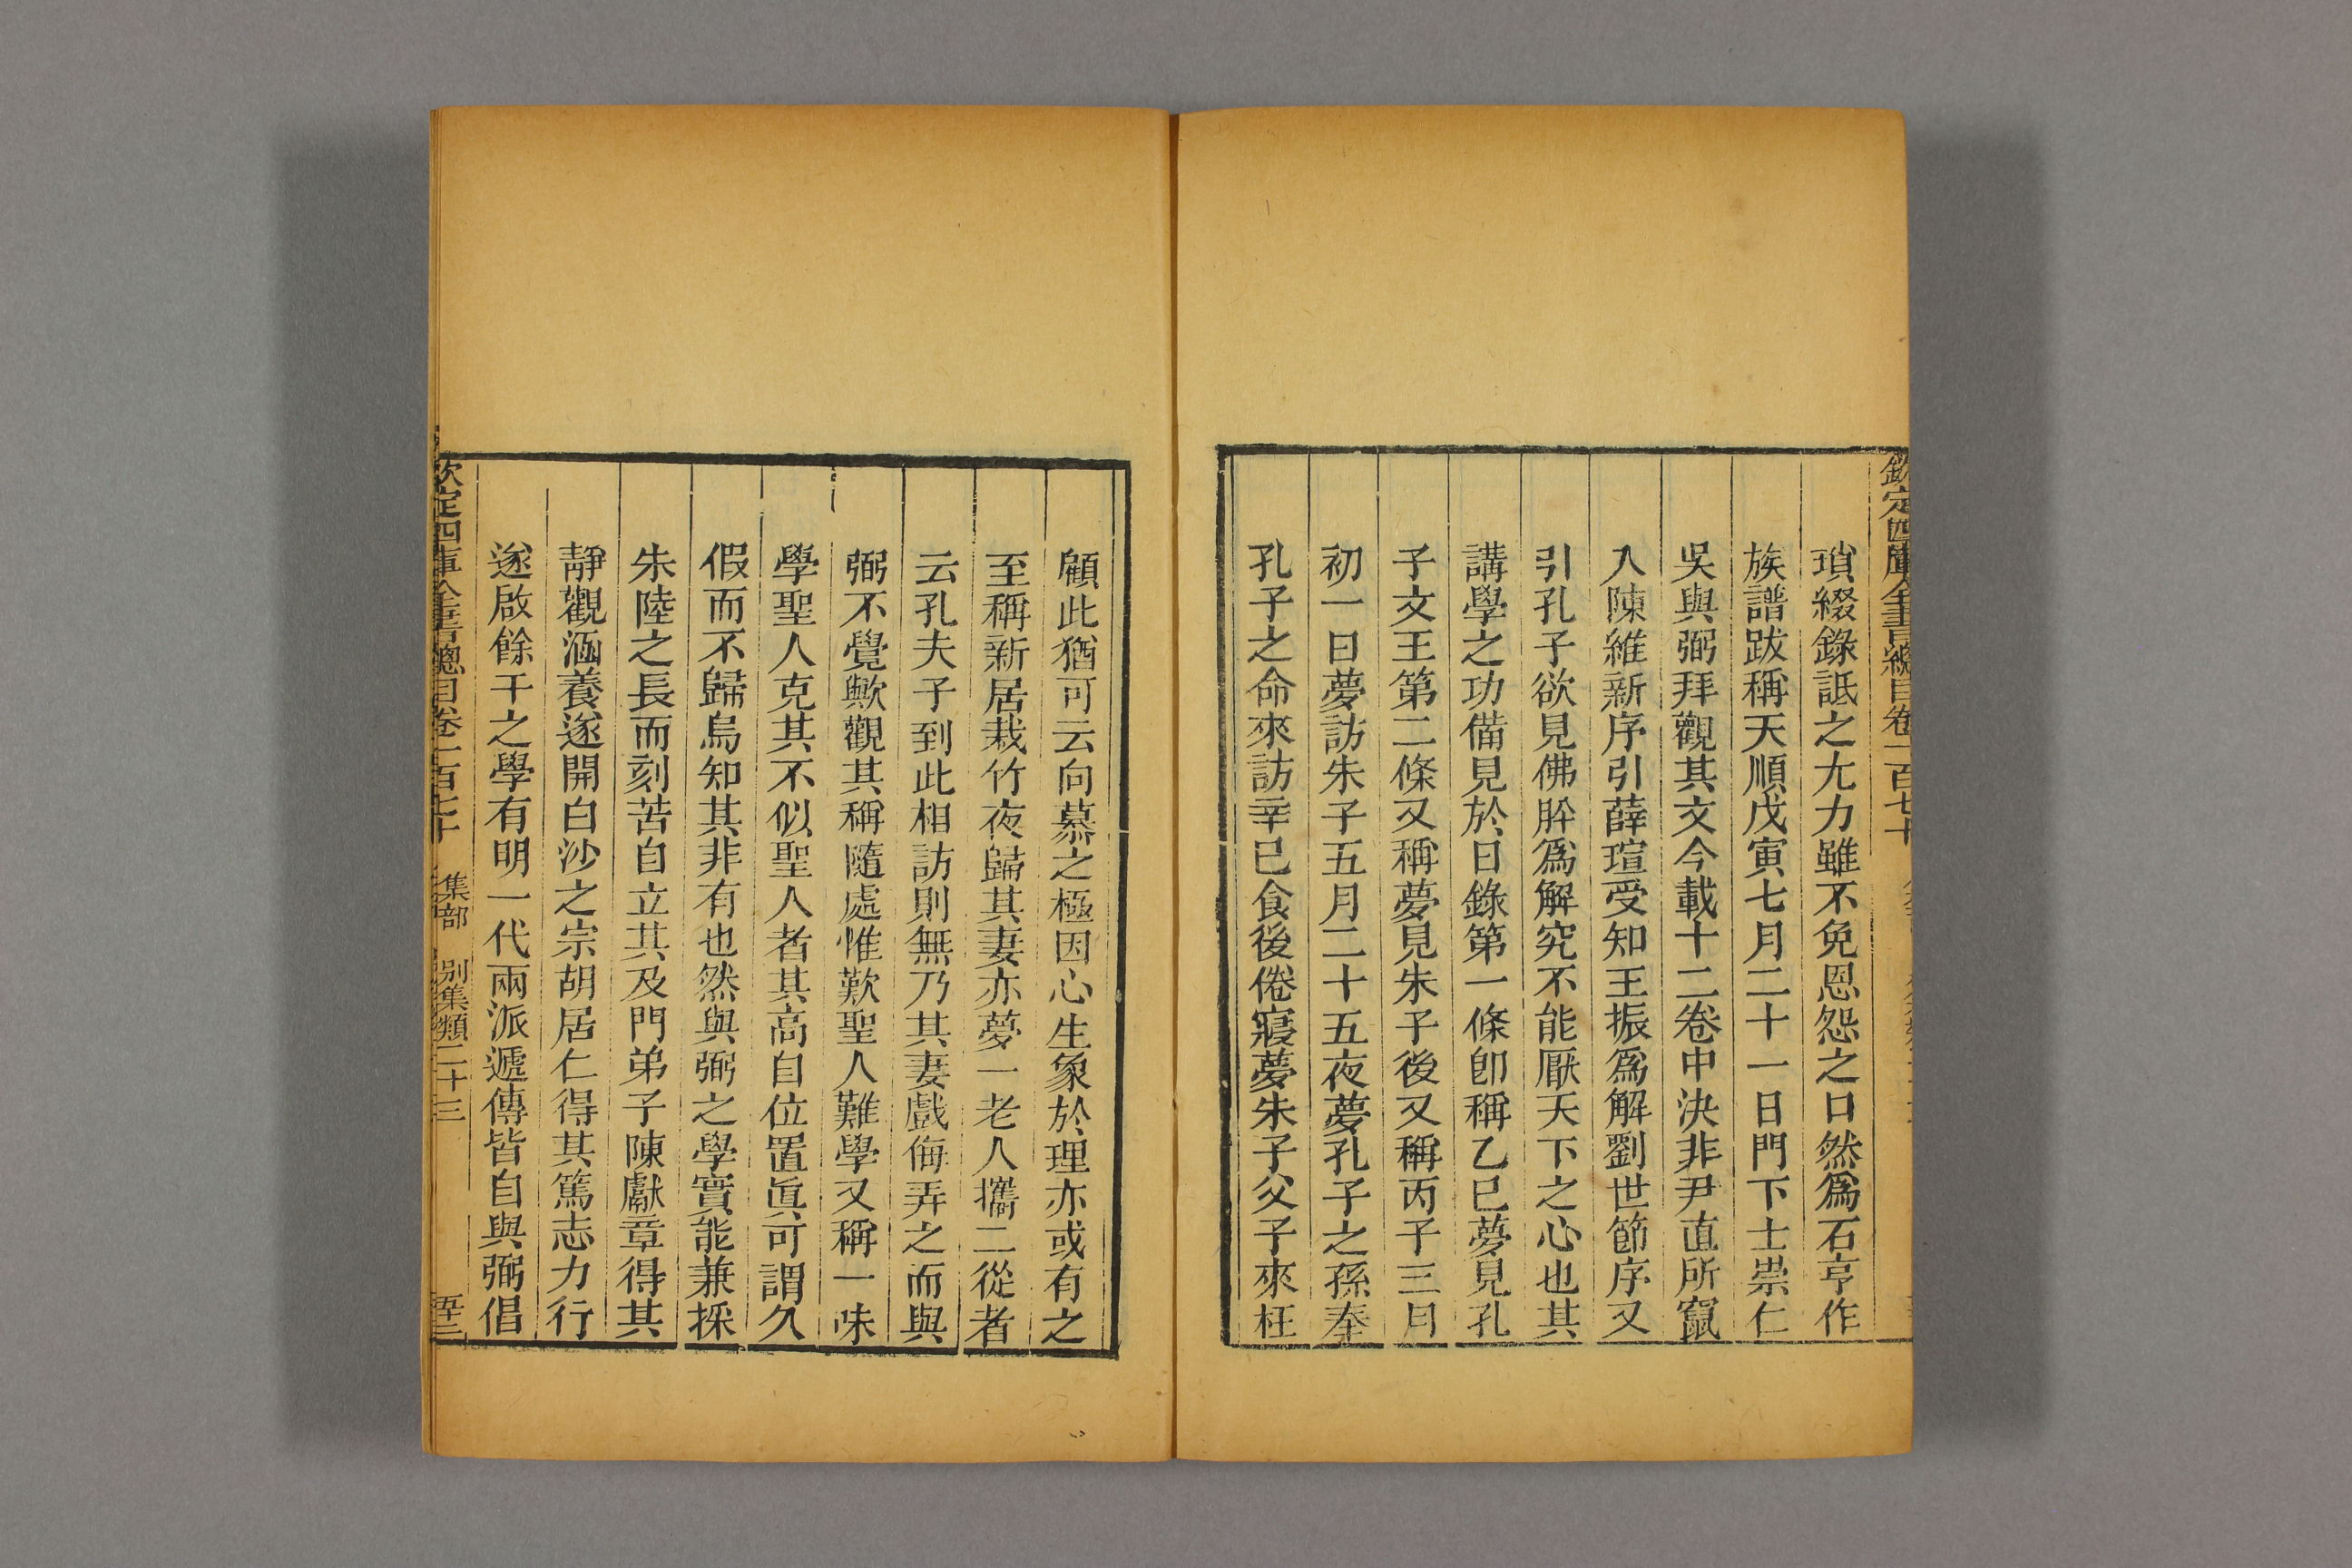 欽定四庫全書總目卷一百七十
瑣綴錄詆之尢力雖不免恩怨之口然爲石亨作
族譜跋稱天順戊寅七月二十一日門下士崇仁
吳與弼拜觀其文今載十二卷中決非尹直所竄
入陳維新序引薛瑄受知王振爲解劉世節序又
引孔子欲見佛肸爲解究不能厭天下之心也其
講學之功備見於日錄第一條卽稱乙巳夢見孔
子文王第二條又稱夢見朱子後又稱丙子三月
初一日夢訪朱子五月二十五夜夢孔子之孫奉
孔子之命來訪辛巳食後倦寢夢朱子父子來枉
顧此猶可云向慕之極因心生象於理亦或有之
至稱新居栽竹夜歸其妻亦夢一老人攜二從者
云孔夫子到此相訪則無乃其妻戲侮弄之而與
弼不覺歟觀其稱隨處惟歎聖人難學又稱一味
學聖人克其不似聖人者其高自位置眞可謂久
假而不歸烏知其非有也然與弼之學實能兼採
朱陸之長而刻苦自立其及門弟子陳獻章得其
靜觀涵養遂開白沙之宗胡居仁得其篤志力行
遂啟餘干之學有明一代兩派遞傳皆自與弼倡
欽定四庫全書總目卷一百七十 集部 別集類二十三